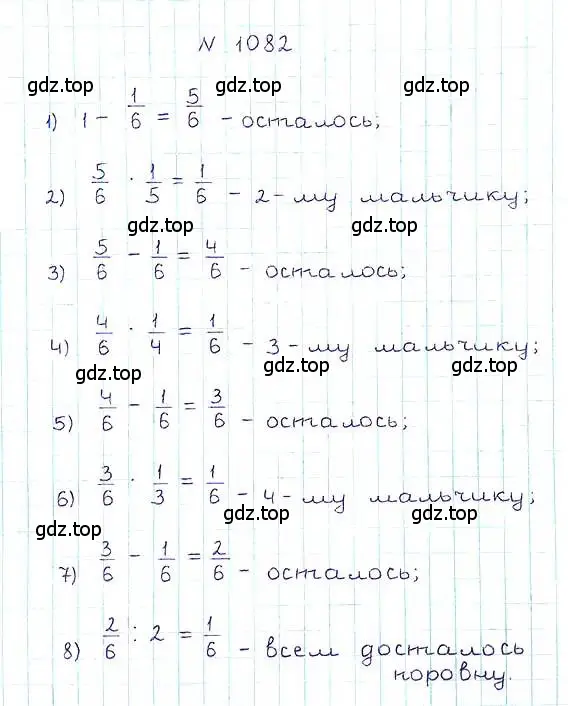 N 1082
gdz.top gdz.top gdz.top
1) 1 - 1/6 = 5/6 - осталось;
2) 5/6 · 1/5 = 1/6 - 2-му мальчику;
gdz.top gdz.top
3) 5/6 - 1/6 = 4/6 - осталось;
4) 4/6 · 1/4 = 1/6 - 3-му мальчику;
gdz.top gdz.top gdz.top
5) 4/6 - 1/6 = 3/6 - осталось;
6) 3/6 · 1/3 = 1/6 - 4-му мальчику;
gdz.top gdz.top gdz.top
7) 3/6 - 1/6 = 2/6 - осталось;
8) 2/6 : 2 = 1/6 - всем досталось
поровну.